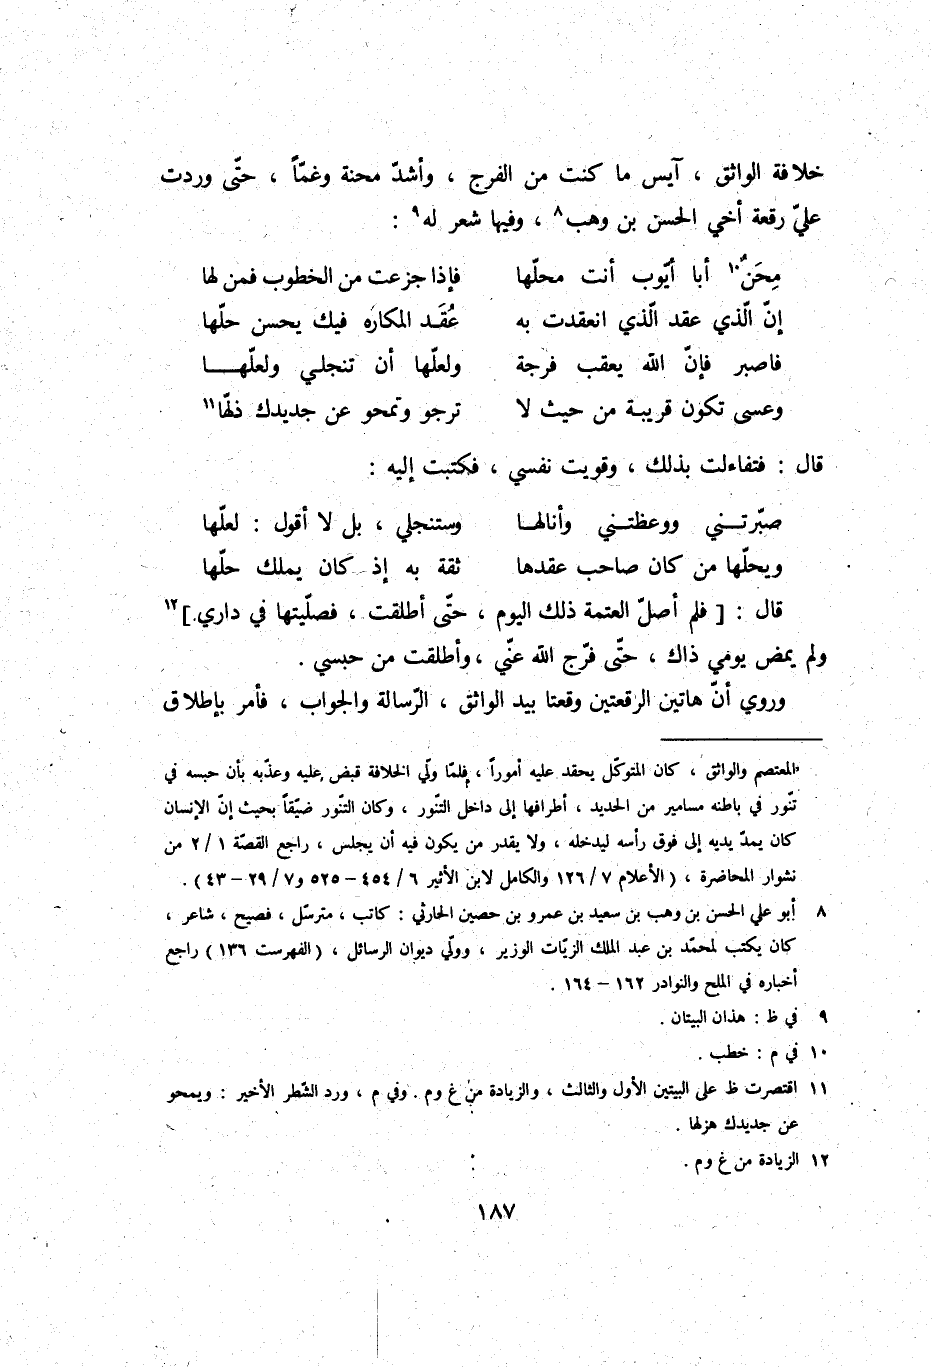 خلافة الواثق ، آيس ما كنت من الفرج ، وأشدّ محنة وغمّاً ، حتّى وردت
عليّ رقعة أخي الحسن بن وهب٨ ، وفيها شعر له٩ :
مِحَنٌ١٠ أبا أيّوب أنت محلّها فإذا جزعت من الخطوب فمن لها
إنّ الّذي عقد الّذي انعقدت به عُقَـد المكاره فيك يحسن حلّها
فاصبر فإنّ الله يعقب فرجة ولعلّها أن تنجلي ولعلّهـــا
وعسى تكون قريبـة من حيث لا ترجو وتمحو عن جديدك ذلّها١١
قال : فتفاءلت بذلك ، وقويت نفسي ، فكتبت إليه :
صبّرتـــني ووعظتـــني وأنالهــا وستنجلي ، بل لا أقول : لعلّها
ويحلّها من كان صاحب عقدها ثقة به إذ كان يملك حلّها
قال : [ فلم أصلّ العتمة ذلك اليوم ، حتّى أطلقت ، فصلّيتها في داري ]١٢
ولم يمض يومي ذاك ، حتّى فرّج الله عنّي ، وأطلقت من حبسي .
وروي أنّ هاتين الرقعتين وقعتا بيد الواثق ، الرّسالة والجواب ، فأمر بإطلاق
المعتصم والواثق ، كان المتوكّل يحقد عليه أموراً ، فلمّا ولّي الخلافة قبض عليه وعذّبه بأن حبسه في
تنّور في باطنه مسامير من الحديد ، أطرافها إلى داخل التنّور ، وكان التنّور ضيّقاً بحيث إنّ الإنسان
كان يمدّ يديه إلى فوق رأسه ليدخله ، ولا يقدر من يكون فيه أن يجلس ، راجع القصّة ١ / ٢ من
نشوار المحاضرة ، ( الأعلام ٧ / ١٢٦ والكامل لابن الأثير ٦ / ٤٥٤ – ٥٢٥ و٧ / ٢٩ – ٤٣ ) .
٨ أبو علي الحسن بن وهب بن سعيد بن عمرو بن حصين الحارثي : كاتب ، مترسّل ، فصيح ، شاعر ،
كان يكتب لمحمّد بن عبد الملك الزيّات الوزير ، وولّي ديوان الرسائل ، ( الفهرست ١٣٦ ) راجع
أخباره في الملح والنوادر ١٦٢ – ١٦٤ .
٩ في ظ : هذان البيتان .
١٠ في م : خطب .
١١ اقتصرت ظ على البيتين الأول والثالث ، والزيادة من غ وم . وفي م ، ورد الشّطر الأخير : ويمحو
عن جديدك هزلها .
١٢ الزيادة من غ وم .
١٨٧